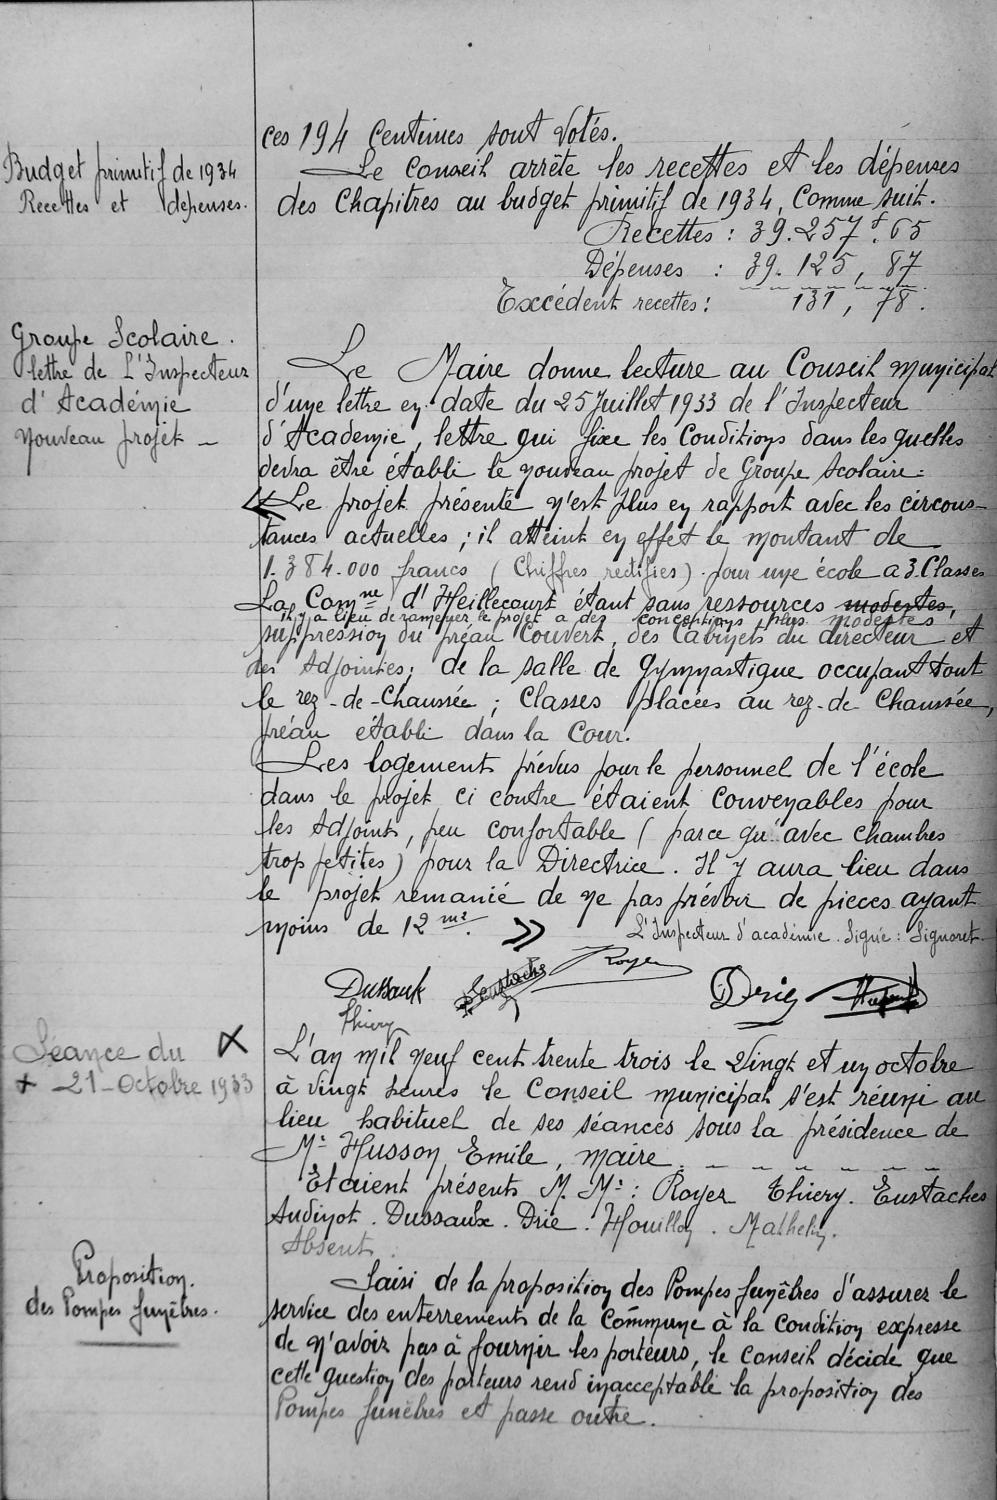 ces 194 centimes sont votés.
Budget primitif de 1934
Recettes et depenses.
Le Conseil arrête les recettes et les dépenses
des Chapitres au budget primitif de 1934, Comme suit.
Recettes : 39.257 f. 65
Dépenses : 39.125, 87
Excédent recettes : 131, 78.
Groupe Scolaire.
lettre de L'Inspecteur
d'Académie
nouveau projet –
Le Maire donne lecture au Conseil municipal
d'une lettre en date du 25 Juillet 1933 de l'Inspecteur
d'Academie, lettre qui fixe les Conditions dans les quelles
devra être établi le nouveau projet de Groupe scolaire :
« Le projet présenté n'est plus en rapport avec les circons-
tances actuelles ; il atteint en effet le montant de
1.384.000 francs (Chiffres rectifies) pour une école a 3 Classes
La Comne d'Heillecourt étant sans ressources modestes,
il y a lieu de ramener le projet a des conceptions plus modestes
suppression du préau Couvert, des Cabinets du directeur et
des Adjointes ; de la salle de Gymnastique occupant tout
le rez-de-Chaussée ; Classes placées au rez-de Chaussée,
préau établi dans la Cour.
Les logements prévus pour le personnel de l'école
dans le projet ci contre étaient Convenables pour
les Adjoints, peu confortable (parce qu'avec chambres
trop petites) pour la Directrice. Il y aura lieu dans
le projet remanié de ne pas prévoir de pieces ayant
moins de 12 m2. »
L'Inspecteur d'académie. Signé : Signoret
Dussaulx Eustache Royer Drié
Thiery
Séance du X
+ 21-Octobre 1933
L'an mil neuf cent trente trois le Vingt et un octobre
à vingt heures le Conseil municipal s'est réuni au
lieu habituel de ses séances sous la présidence de
Mr Husson Emile, maire.
Etaient présents M. Mrs : Royer Thiery. Eustaches
Audinot. Dussaulx. Drié. Houillon. Mathelin.
Absent :
Proposition.
des Pompes funèbres.
Saisi de la proposition des Pompes funèbres d'assurer le
service des enterrements de la Commune à la condition expresse
de n'avoir pas à fournir les porteurs, le Conseil décide que
cette question des porteurs rend inacceptable la proposition des
Pompes funèbres et passe outre.